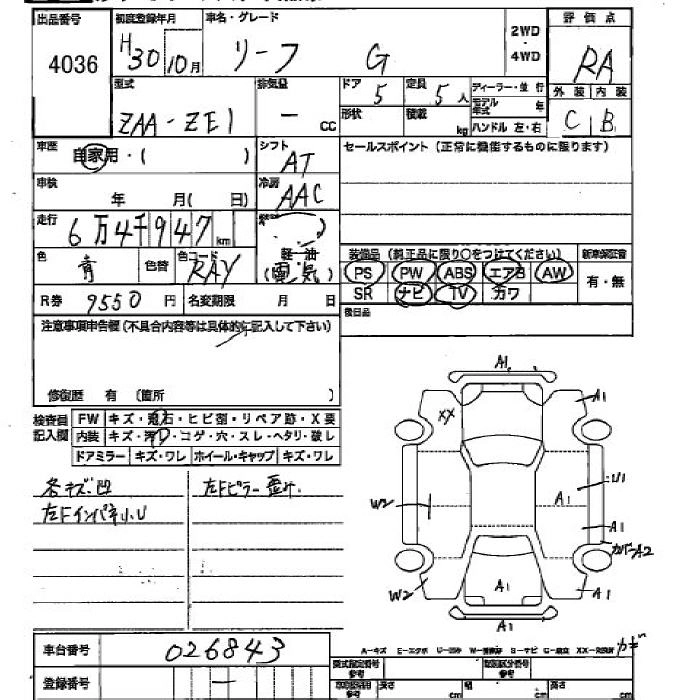 出品番号 初度登録年月 車名・グレード 評価点
4036 H30 10月 リーフ G 2WD・4WD RA
型式 排気量 ドア 定員 ディーラー・並行 外装 内装
ZAA-ZE1 ー CC 5 5人 モデル年式 年 C B
形状 積載 kg ハンドル 左・右
車歴 自家用・( ) シフト AT セールスポイント(正常に機能するものに限ります)
車検 年 月( 日) 冷房 AAC
走行 6万4千947km
軽・油 (電気) 装備品(純正品に限り○をつけてください) 新車保証書
色 青 色替 色コード RAY PS PW ABS エアB AW 有・無
SR ナビ TV カワ
R券 9550円 名変期限 月 日 後日品
注意事項申告欄(不具合内容等は具体的に記入して下さい)
修復歴 有 (箇所 )
検査員記入欄 FW キズ・飛石・ヒビ割・リペア跡・X要
内装 キズ・浮・コゲ・穴・スレ・ヘタリ・破レ
ドアミラー キズ・ワレ ホイール・キャップ キズ・ワレ
各キズ凹 左Fピラー歪み
左Fインパネ小U
A1
XX A1
W2 A1 U1
A1
カバーA2
W2 A1 A1
A1
車台番号 026843
A-キズ E-エクボ
登録番号 ー
長さ cm 幅 cm 高さ cm